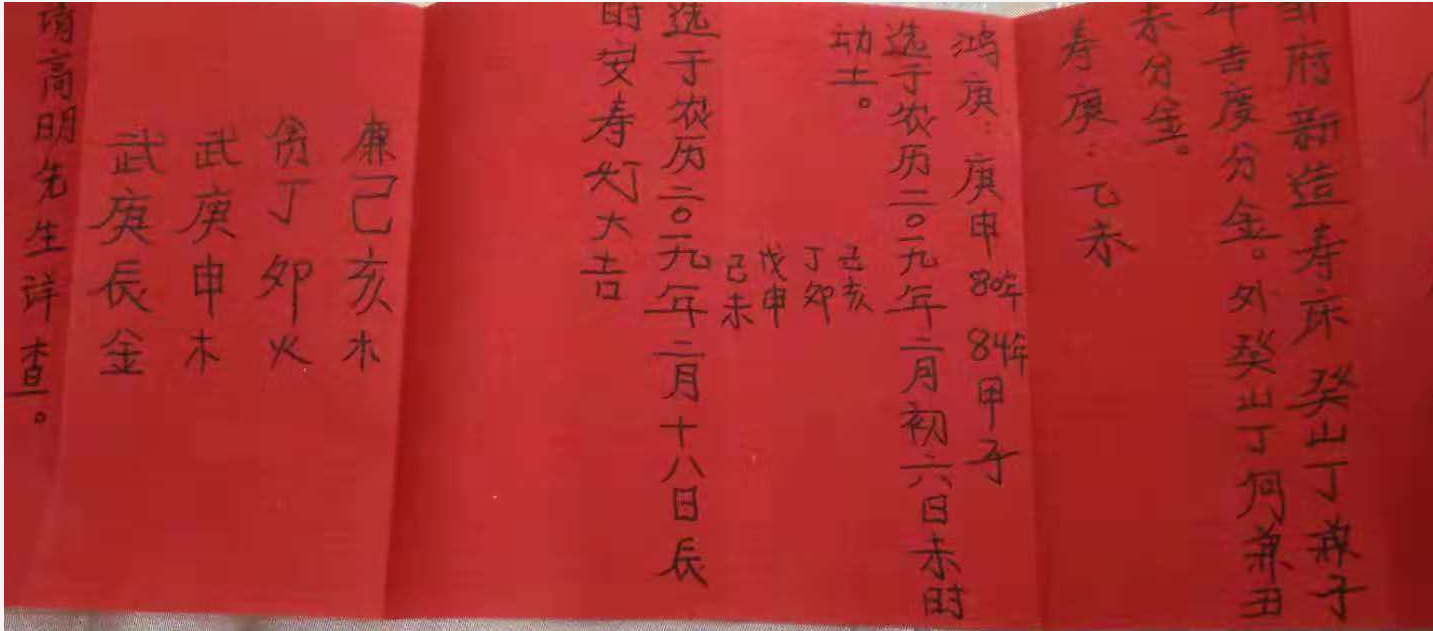 府新造寿床癸山丁兼子
午吉度分金。外癸山丁向兼丑
未分金。
寿庚：乙未
鸿庚：庚申80年84年甲子
选于农历二〇一九年二月初六日未时
动土。
己亥
丁卯
戊申
己未
选于农历二〇一九年二月十八日辰
时安寿灯大吉
廉己亥木
贪丁卯火
武庚申木
武庚辰金
请高明先生详查。